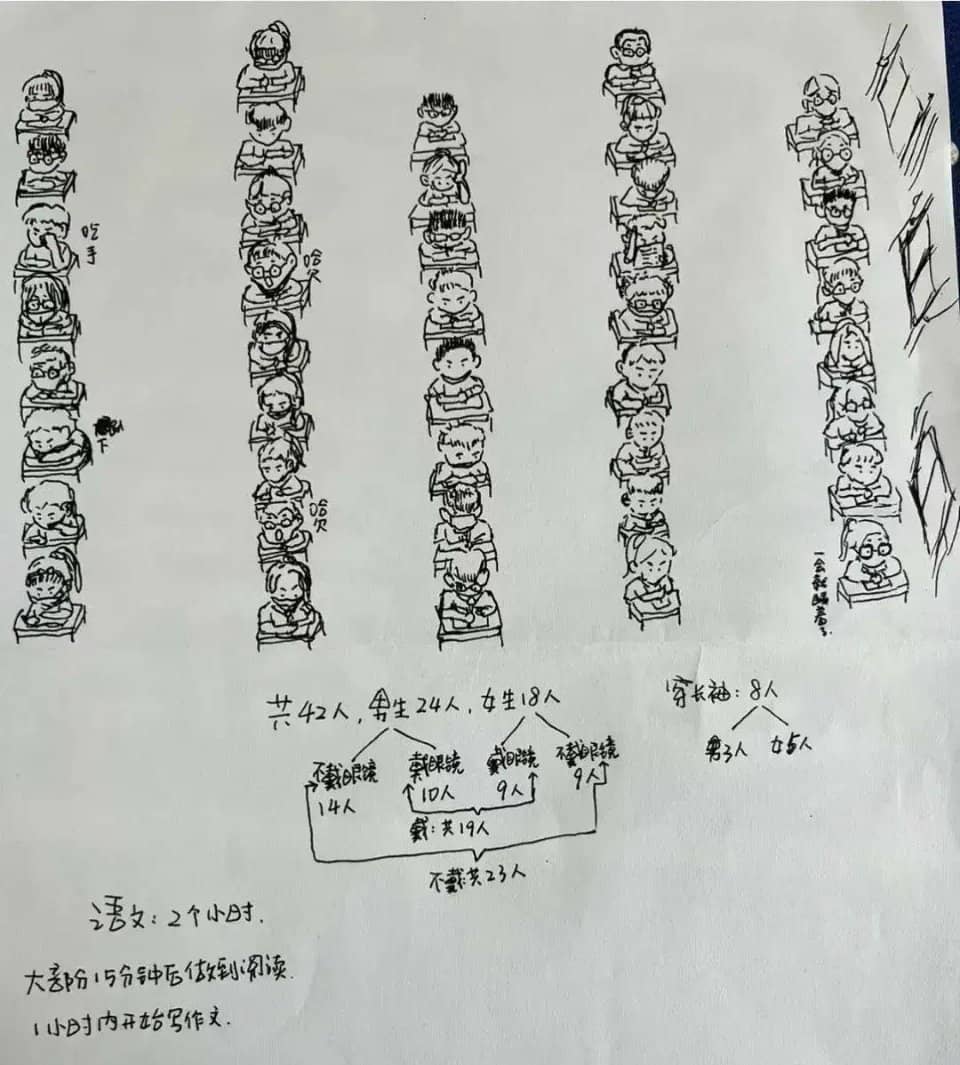 吃手
哈欠
下
哈欠
一会就睡着了.
共42人,男生24人,女生18人
不戴眼镜 14人
戴眼镜 10人
戴眼镜 9人
不戴眼镜 9人
戴:共19人
不戴共23人
穿长袖:8人
男3人 女5人
语文:2个小时.
大部分15分钟后做到阅读.
1小时内开始写作文.